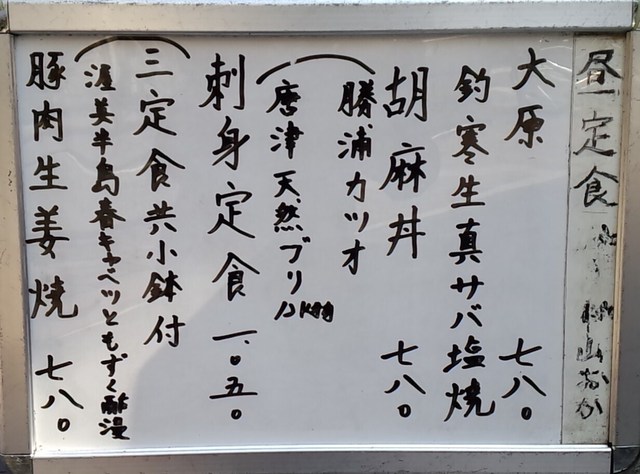 昼定食
大原 七八〇
釣寒生真サバ塩焼
胡麻丼 七八〇
勝浦カツオ
唐津天然ブリ12kg
刺身定食 一、〇五〇
三定食共小鉢付
渥美半島春キャベツともずく酢漫
豚肉生姜焼 七八〇